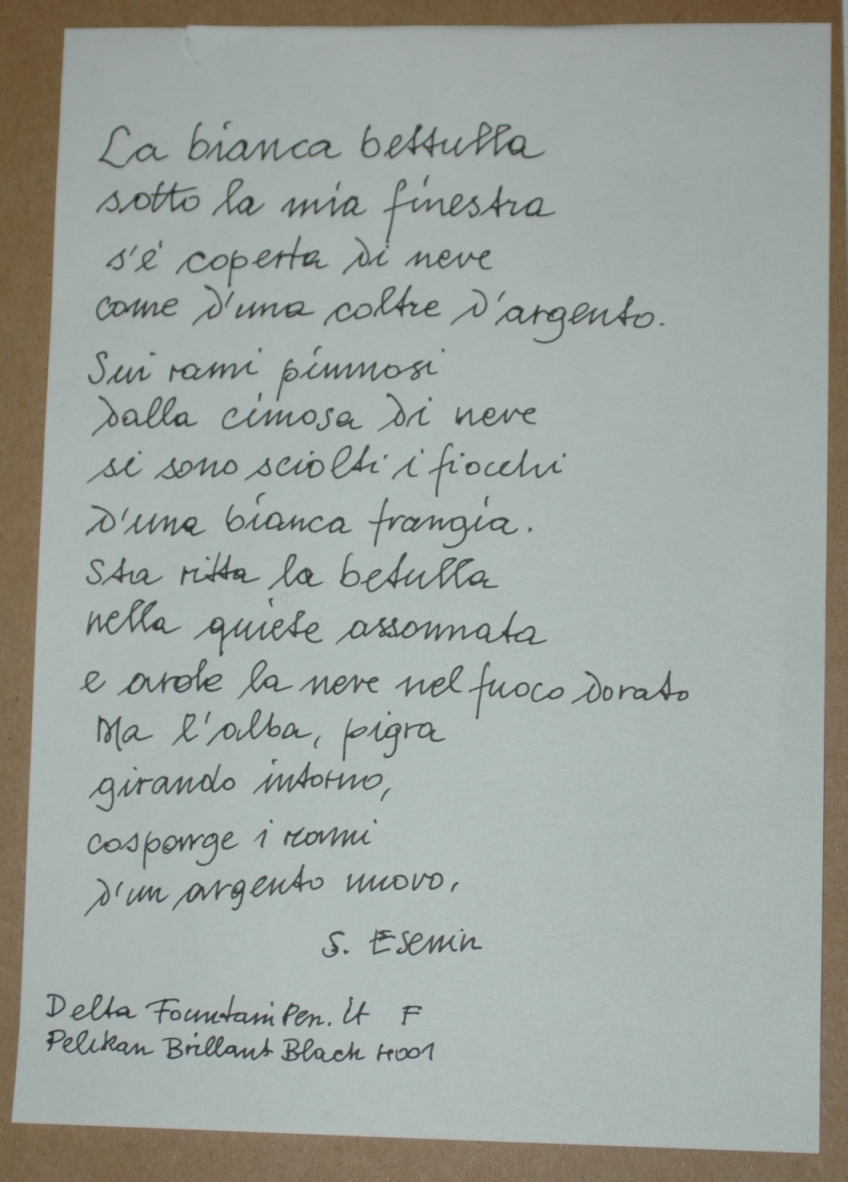 La bianca bettulla
sotto la mia finestra
s'è coperta di neve
come d'una coltre d'argento.
Sui rami piumosi
dalla cimosa di neve
si sono sciolti i fiocchi
d'una bianca frangia.
Sta ritta la betulla
nella quiete assonnata
e arde la neve nel fuoco dorato
Ma l'alba, pigra
girando intorno,
cosparge i rami
d'un argento nuovo,
S. Esenin
Delta FountainPen.it F
Pelikan Brillant Black 4001